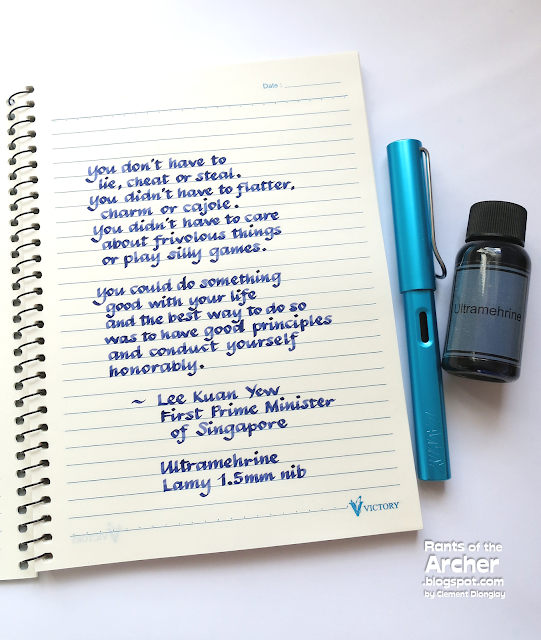 Date :
You don't have to
lie, cheat or steal.
You didn't have to flatter,
charm or cajole.
You didn't have to care
about frivolous things
or play silly games.
You could do something
good with your life
and the best way to do so
was to have good principles
and conduct yourself
honorably.
~ Lee Kuan Yew
First Prime Minister
of Singapore
Ultramehrine
Lamy 1.5mm nib
VICTORY
LAMY
Ultramehrine
Rants of the
Archer
.blogspot.com
by Clement Dionglay